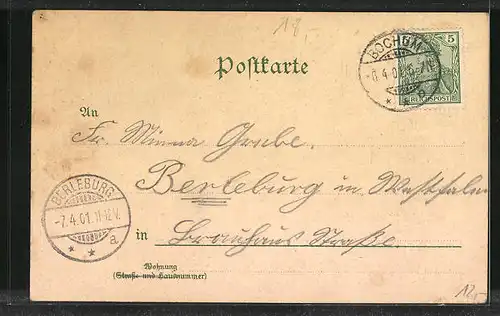 18,
Postkarte
BOCHUM
5
REICHSPOST
a
An
Fr. Minna Grabe.
Berleburg in Westfalen
BERLEBURG
-7.4.01.11-12V.
a
in Brauhaus Straße.
Wohnung
(Straße und Hausnummer)
12,-